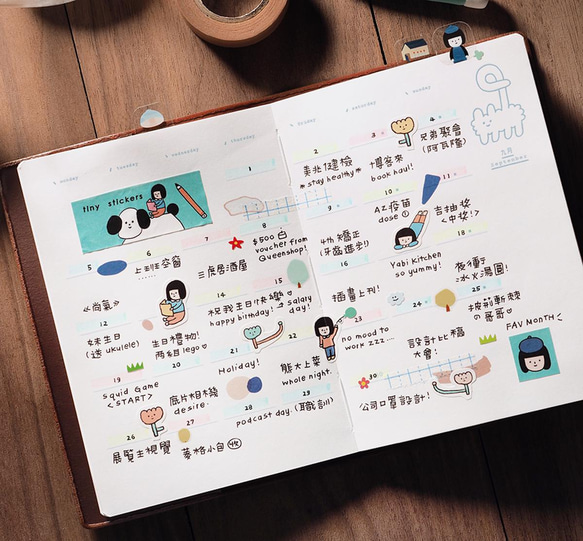 monday
tuesday
wednesday
thursday
1
tiny stickers
5
6
7
8
上班空窗
$500 白
voucher from
Queenshop!
三虎居酒屋
12
14
15
《尚氣》
祝我生日快樂♡
happy birthday!
salary
day!
妹生日
(送 ukulele)
生日禮物!
兩組 lego♡
19
20
21
22
Squid Game
<START>
底片相機
desire.
Holiday!
熊大上菜
whole night.
26
27
28
29
展覽主視覺
podcast day. (職訓)
friday
saturday
2
3
4
美兆健檢
*stay healthy*
博客來
book haul!
兄弟聚會
(阿瓦隆)
九月
September
9
10
11
4th 矯正
(牙齒進步!)
AZ疫苗
dose ①
吉抽獎
<中獎!>
16
18
Yabi Kitchen
so yummy!
插畫上刊!
冰火湯圓!
23
24
25
no mood to
work zzz...
設計比稿
大會!
披荊斬棘
の哥哥♡
FAV MONTH
30
公司口罩設計!